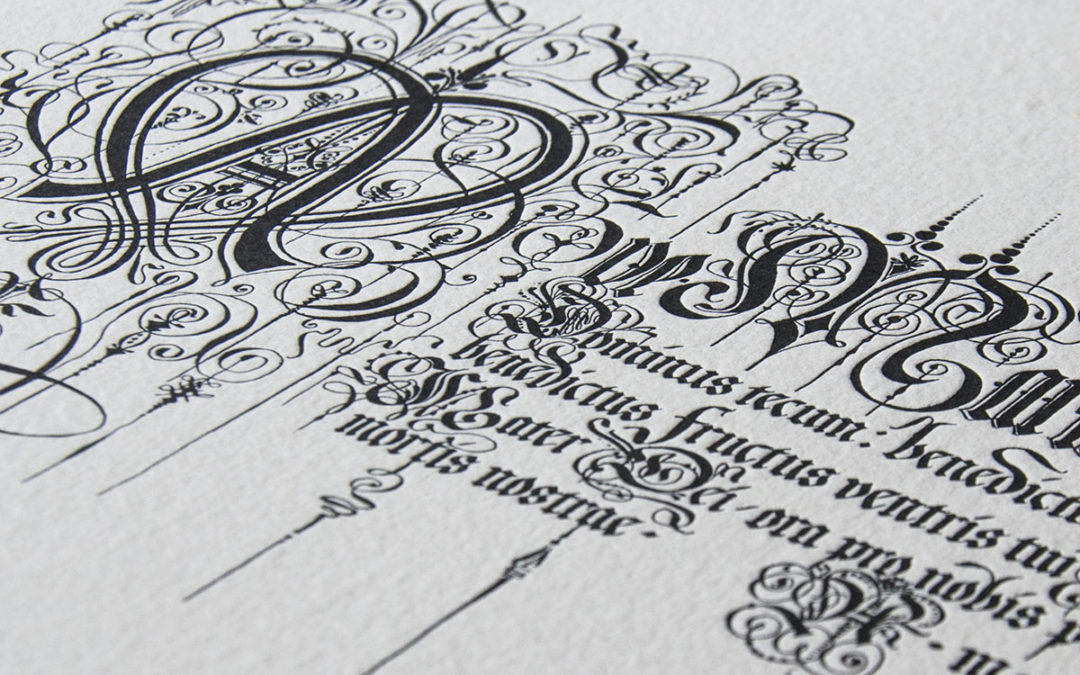 Ave Ma
Dominus tecum: benedict
benedictus fructus ventris tui
Mater Dei ora pro nobis p
mortis nostrae.